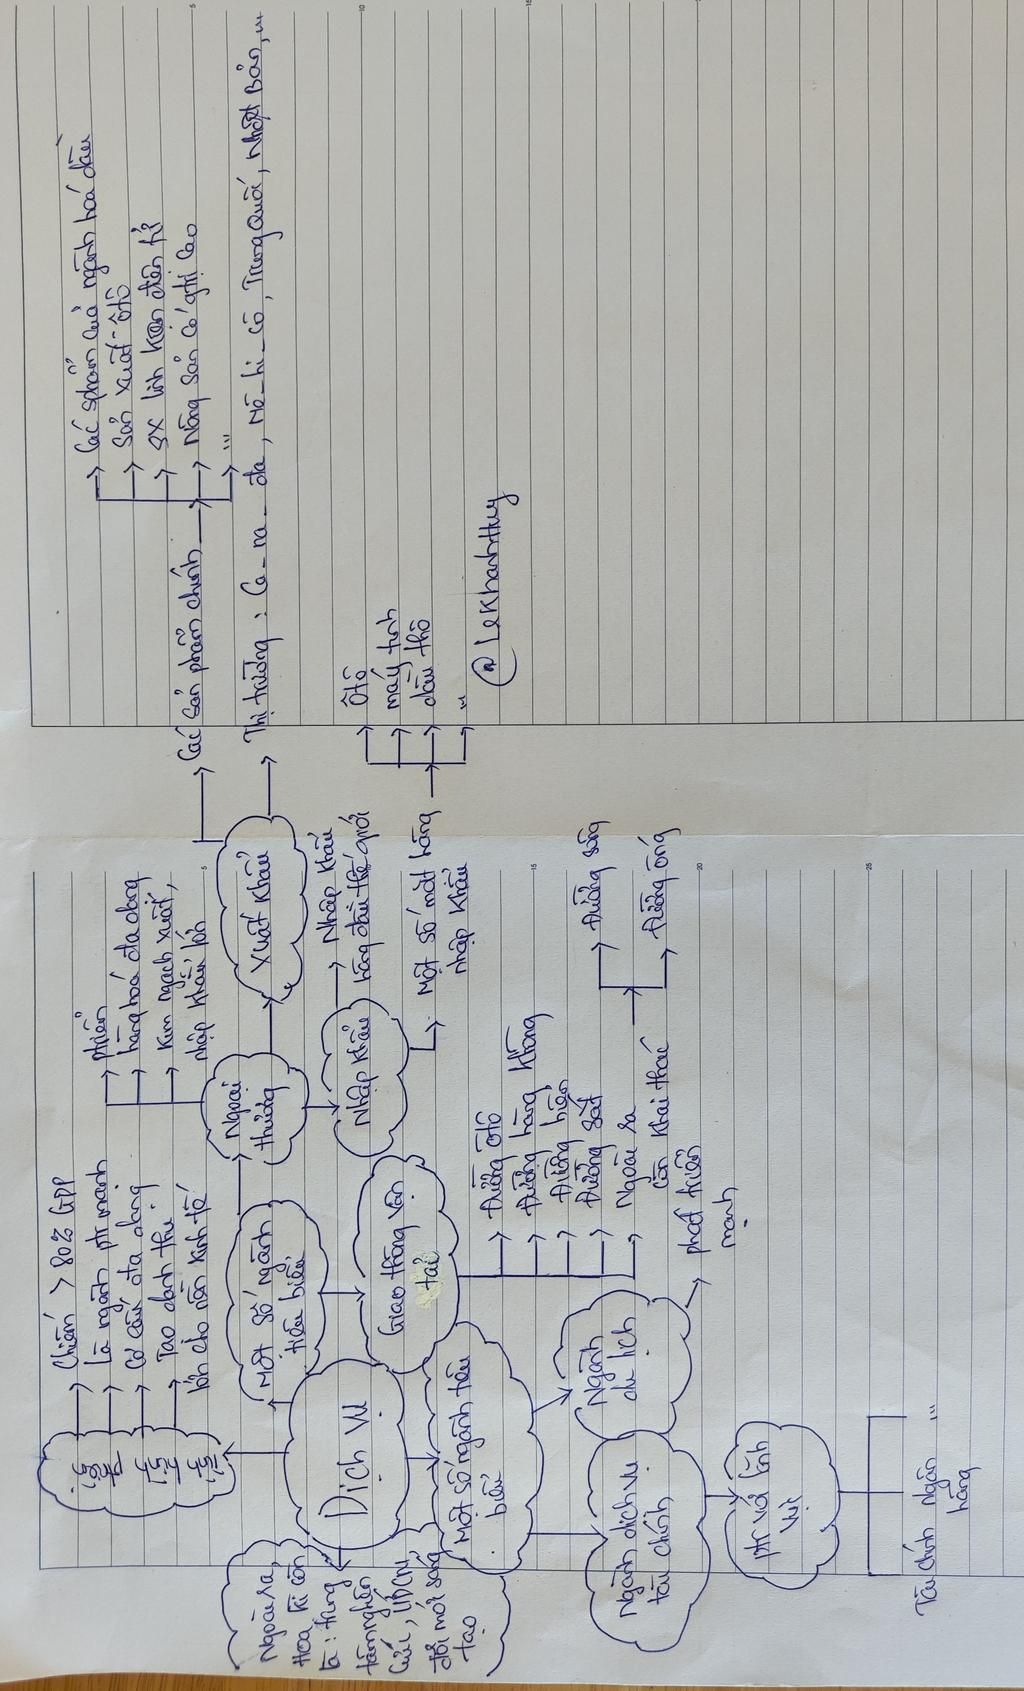 Chiếm > 80% GDP
Là ngành ptr mạnh
Cơ cấu đa dạng
Tạo danh thu
lớn cho nền kinh tế
phiển
hàng hoá đa dạng
Kim ngạch xuất,
nhập khẩu lớn
Một số ngành
tiêu biểu
Ngoại
thương
Xuất khẩu
Các sản phẩm chính
Các sphẩm của ngành hoá dầu
Sản xuất ôtô
SX linh kiện điện tử
Nông sản có gtrị cao
...
Thị trường : Ca_na_đa, Mê_hi_cô, Trung Quốc, Nhật Bản,...
Nhập khẩu
Nhập khẩu
hàng đầu thế giới
Một số mặt hàng
nhập khẩu
Ôtô
máy tính
dầu thô
...
@LeKhanhHuy
Dịch vụ
Giao thông vận
tải
Đường ôtô
Đường hàng không
Đường biển
Đường sắt
Ngoài ra
còn khai thác
Đường sông
Đường ống
Ngoài ra,
Hoa Kì còn
là : trung
tâm nghiên
cứu, UDCN,
đổi mới sáng
tạo
Một số ngành tiêu
biểu
Ngành
du lịch
phát triển
mạnh
Ngành dịch vụ
tài chính
ptr với lĩnh
vực
Tài chính
Ngân
hàng
...